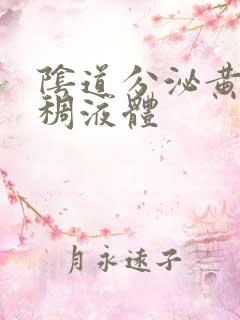 陰道分泌黃
稠液體
月永遠子